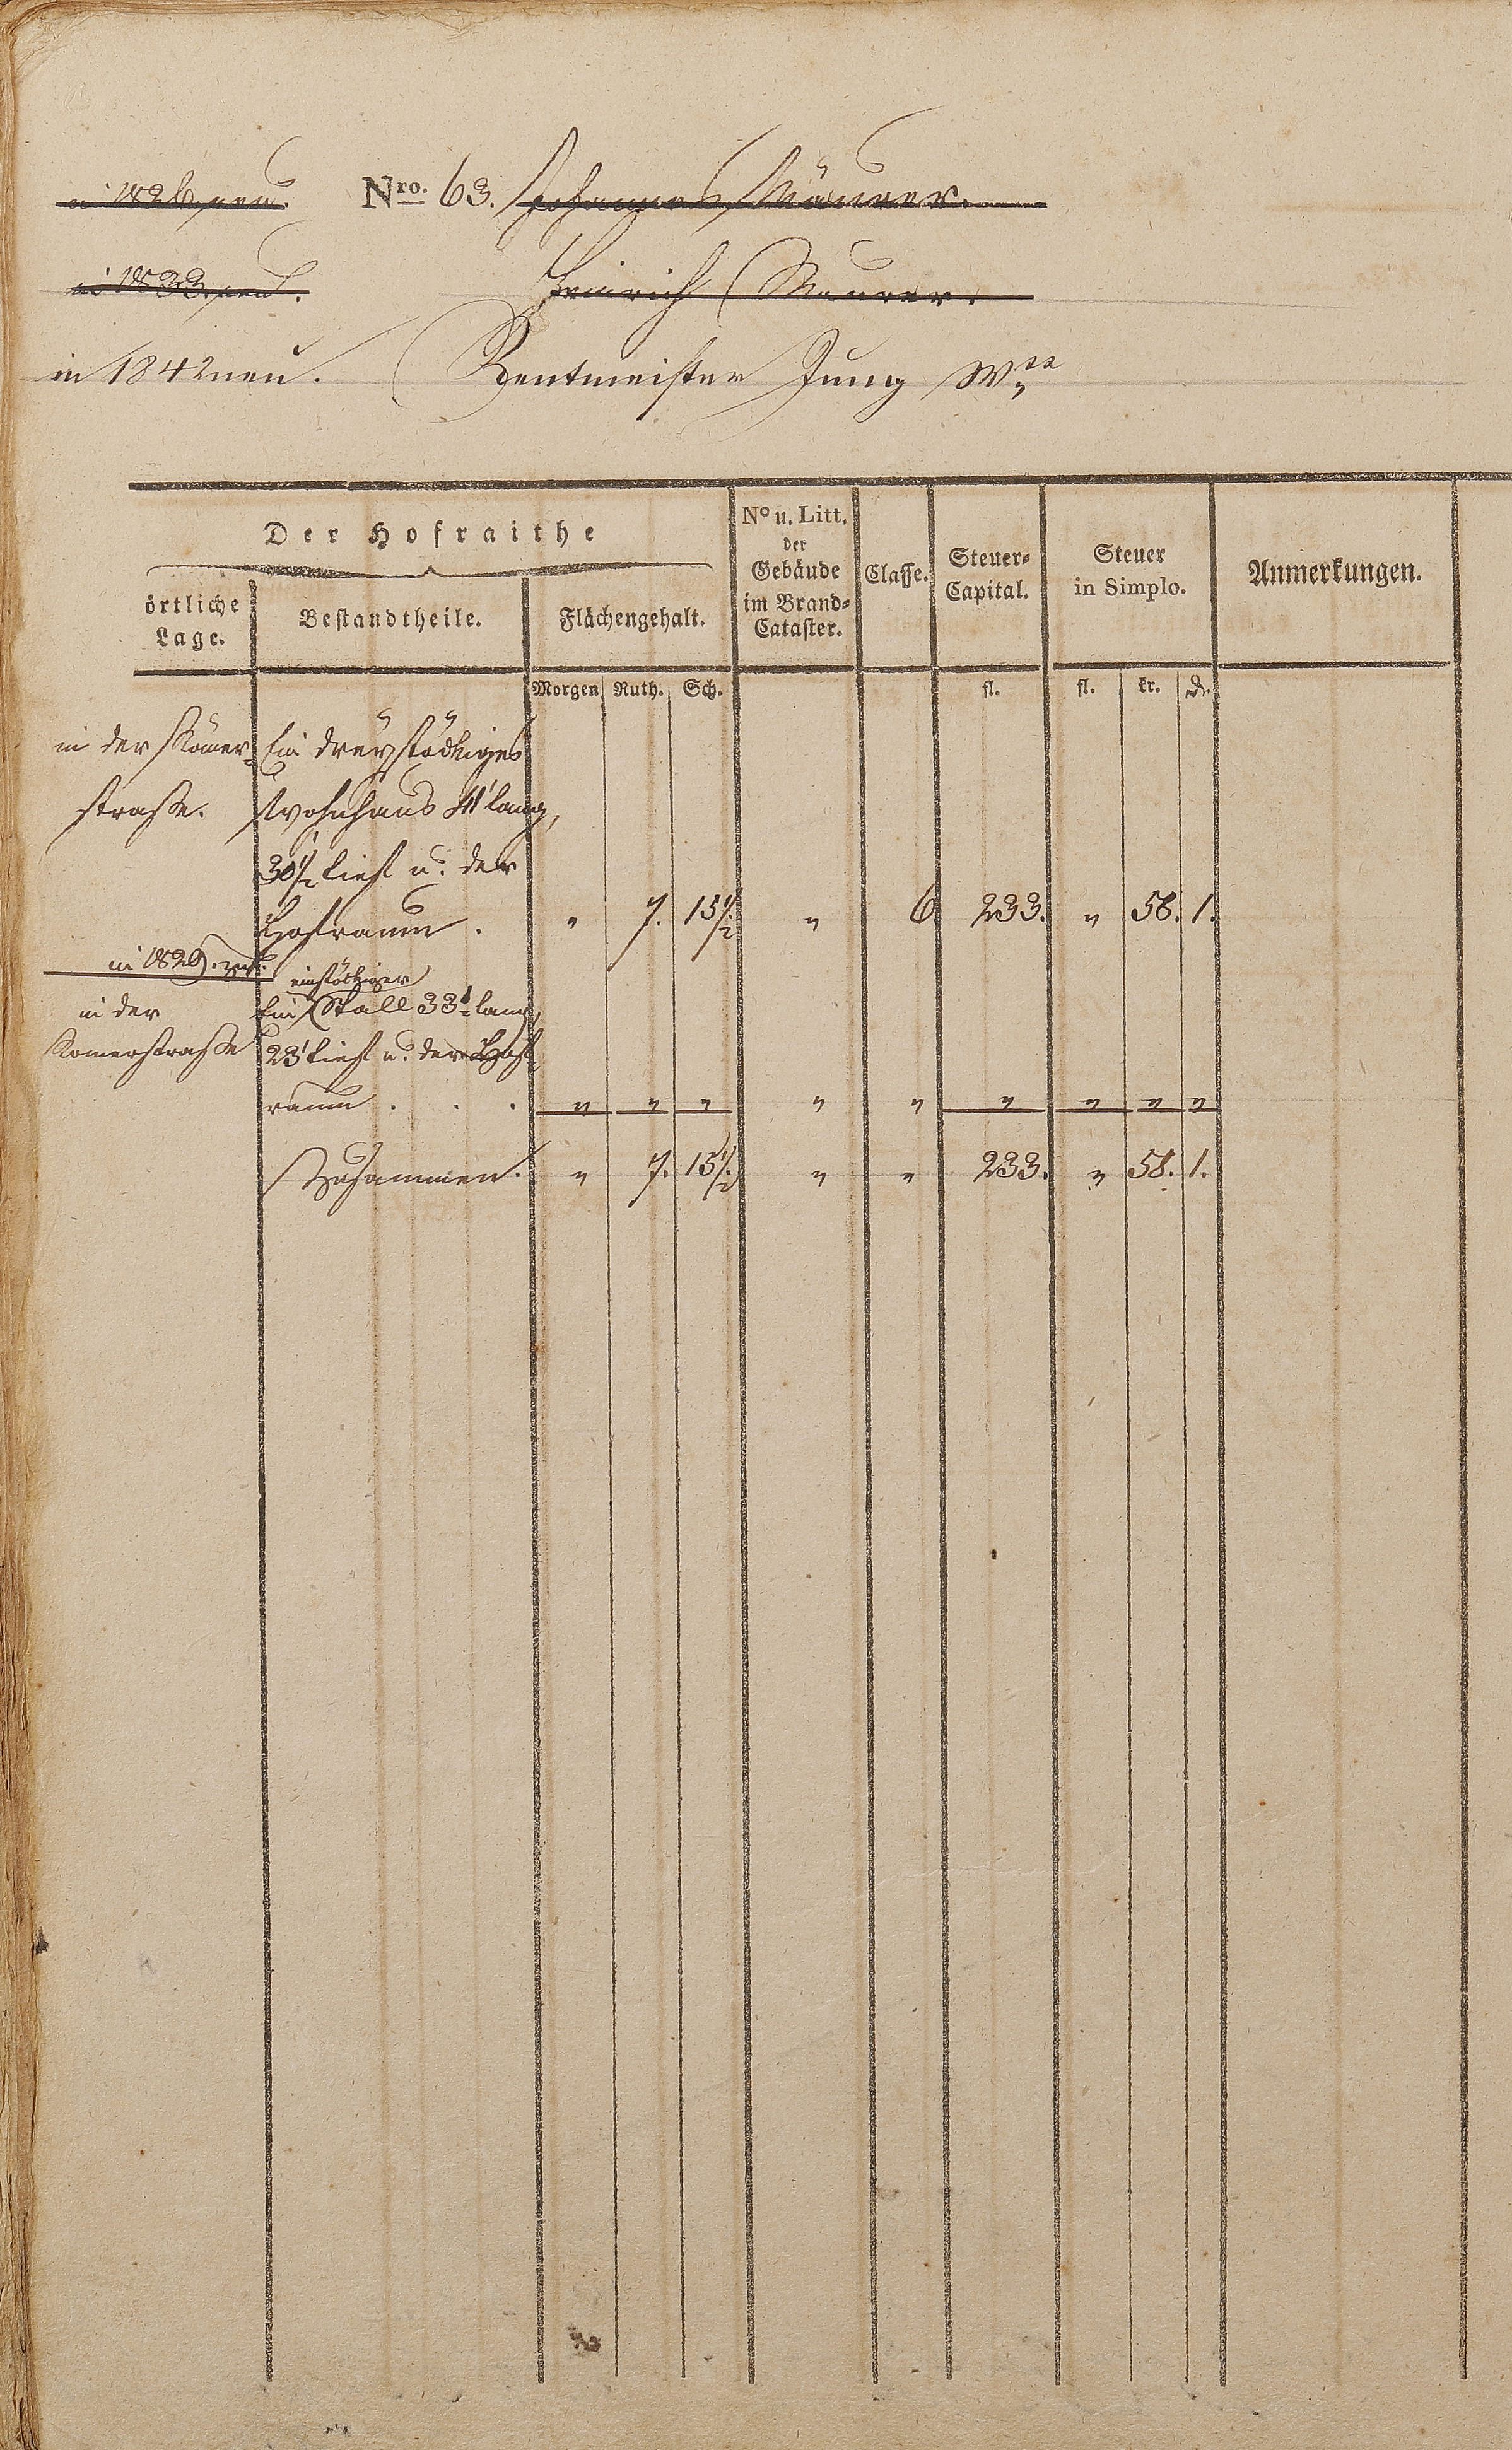 in 1826 neu. Nro. 63. Johannes Mäurer.
in 1833 neu. Heinrich Maurer.
in 1842 neu. Rentmeister Jung Wtt
Der Hofraithe
örtliche Lage. Bestandtheile. Flächengehalt. No u. Litt. der Gebäude im Brand-Cataster. Classe. Steuer-Capital. Steuer in Simplo. Anmerkungen.
Morgen Ruth. Sch. fl. fl. kr. d.
in der Römer- Ein dreystöckiges
straße. Wohnhaus 41' lang,
30 1/2' tief u. der
Hofraum. " 7. 15 1/2 " 6 233. " 58. 1.
in 1829.
einstöckiger
in der Ein Stall 33' lang,
Römerstraße 23' tief u. der Hof-
raum . . . " " " " " " " " "
Zusammen. " 7. 15 1/2 " " 233. " 58. 1.